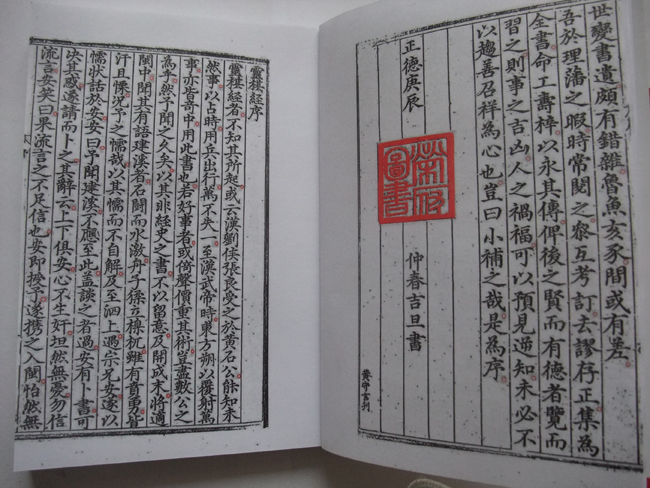 世變書遺頗有錯雜魯魚亥豕間或有差
吾於理藩之暇時常閱之參互考訂去謬存正集為
全書命工壽梓以永其傳俾後之賢而有德者覽而
習之則事之吉凶人之禍福可以預見逆知未必不
以趨善召祥為心也豈曰小補之哉是為序
正德庚辰
榮府圖書
仲春吉旦書
靈棋經序
靈棋經者不知其所起或云漢劉侯張良受之於黃石公能知未
然事以占時用兵出行萬不失一至漢武帝時東方朔以擇射萬
事亦皆奇中用此書也若好事者或倚聲價重其術豈盡數公之
為乎然予聞之久矣以其非經史之書不以留意及開成末將適
閩中聞其有語建溪者名閩而水激舟子立杌雖有賁勇皆
汗且慄況予之懦哉以其懦而不自解及至泗上遇宗兄安遂以
懦狀話於安安曰予聞建溪不應至此蓋談之者過安有卜書可
決其惑遂請而卜之其辭云上下俱安心不生奸坦然無憂勿信
流言安笑曰果流言之不足信也安即授予遂攜之入閩怡然無